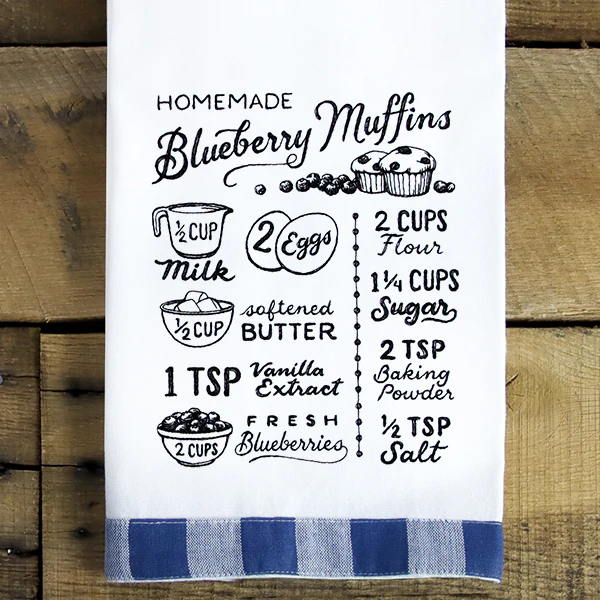 HOMEMADE
Blueberry Muffins
½ CUP
Milk
2 Eggs
½ CUP
softened
BUTTER
1 TSP
Vanilla
Extract
2 CUPS
FRESH
Blueberries
2 CUPS
Flour
1¼ CUPS
Sugar
2 TSP
Baking
Powder
½ TSP
Salt